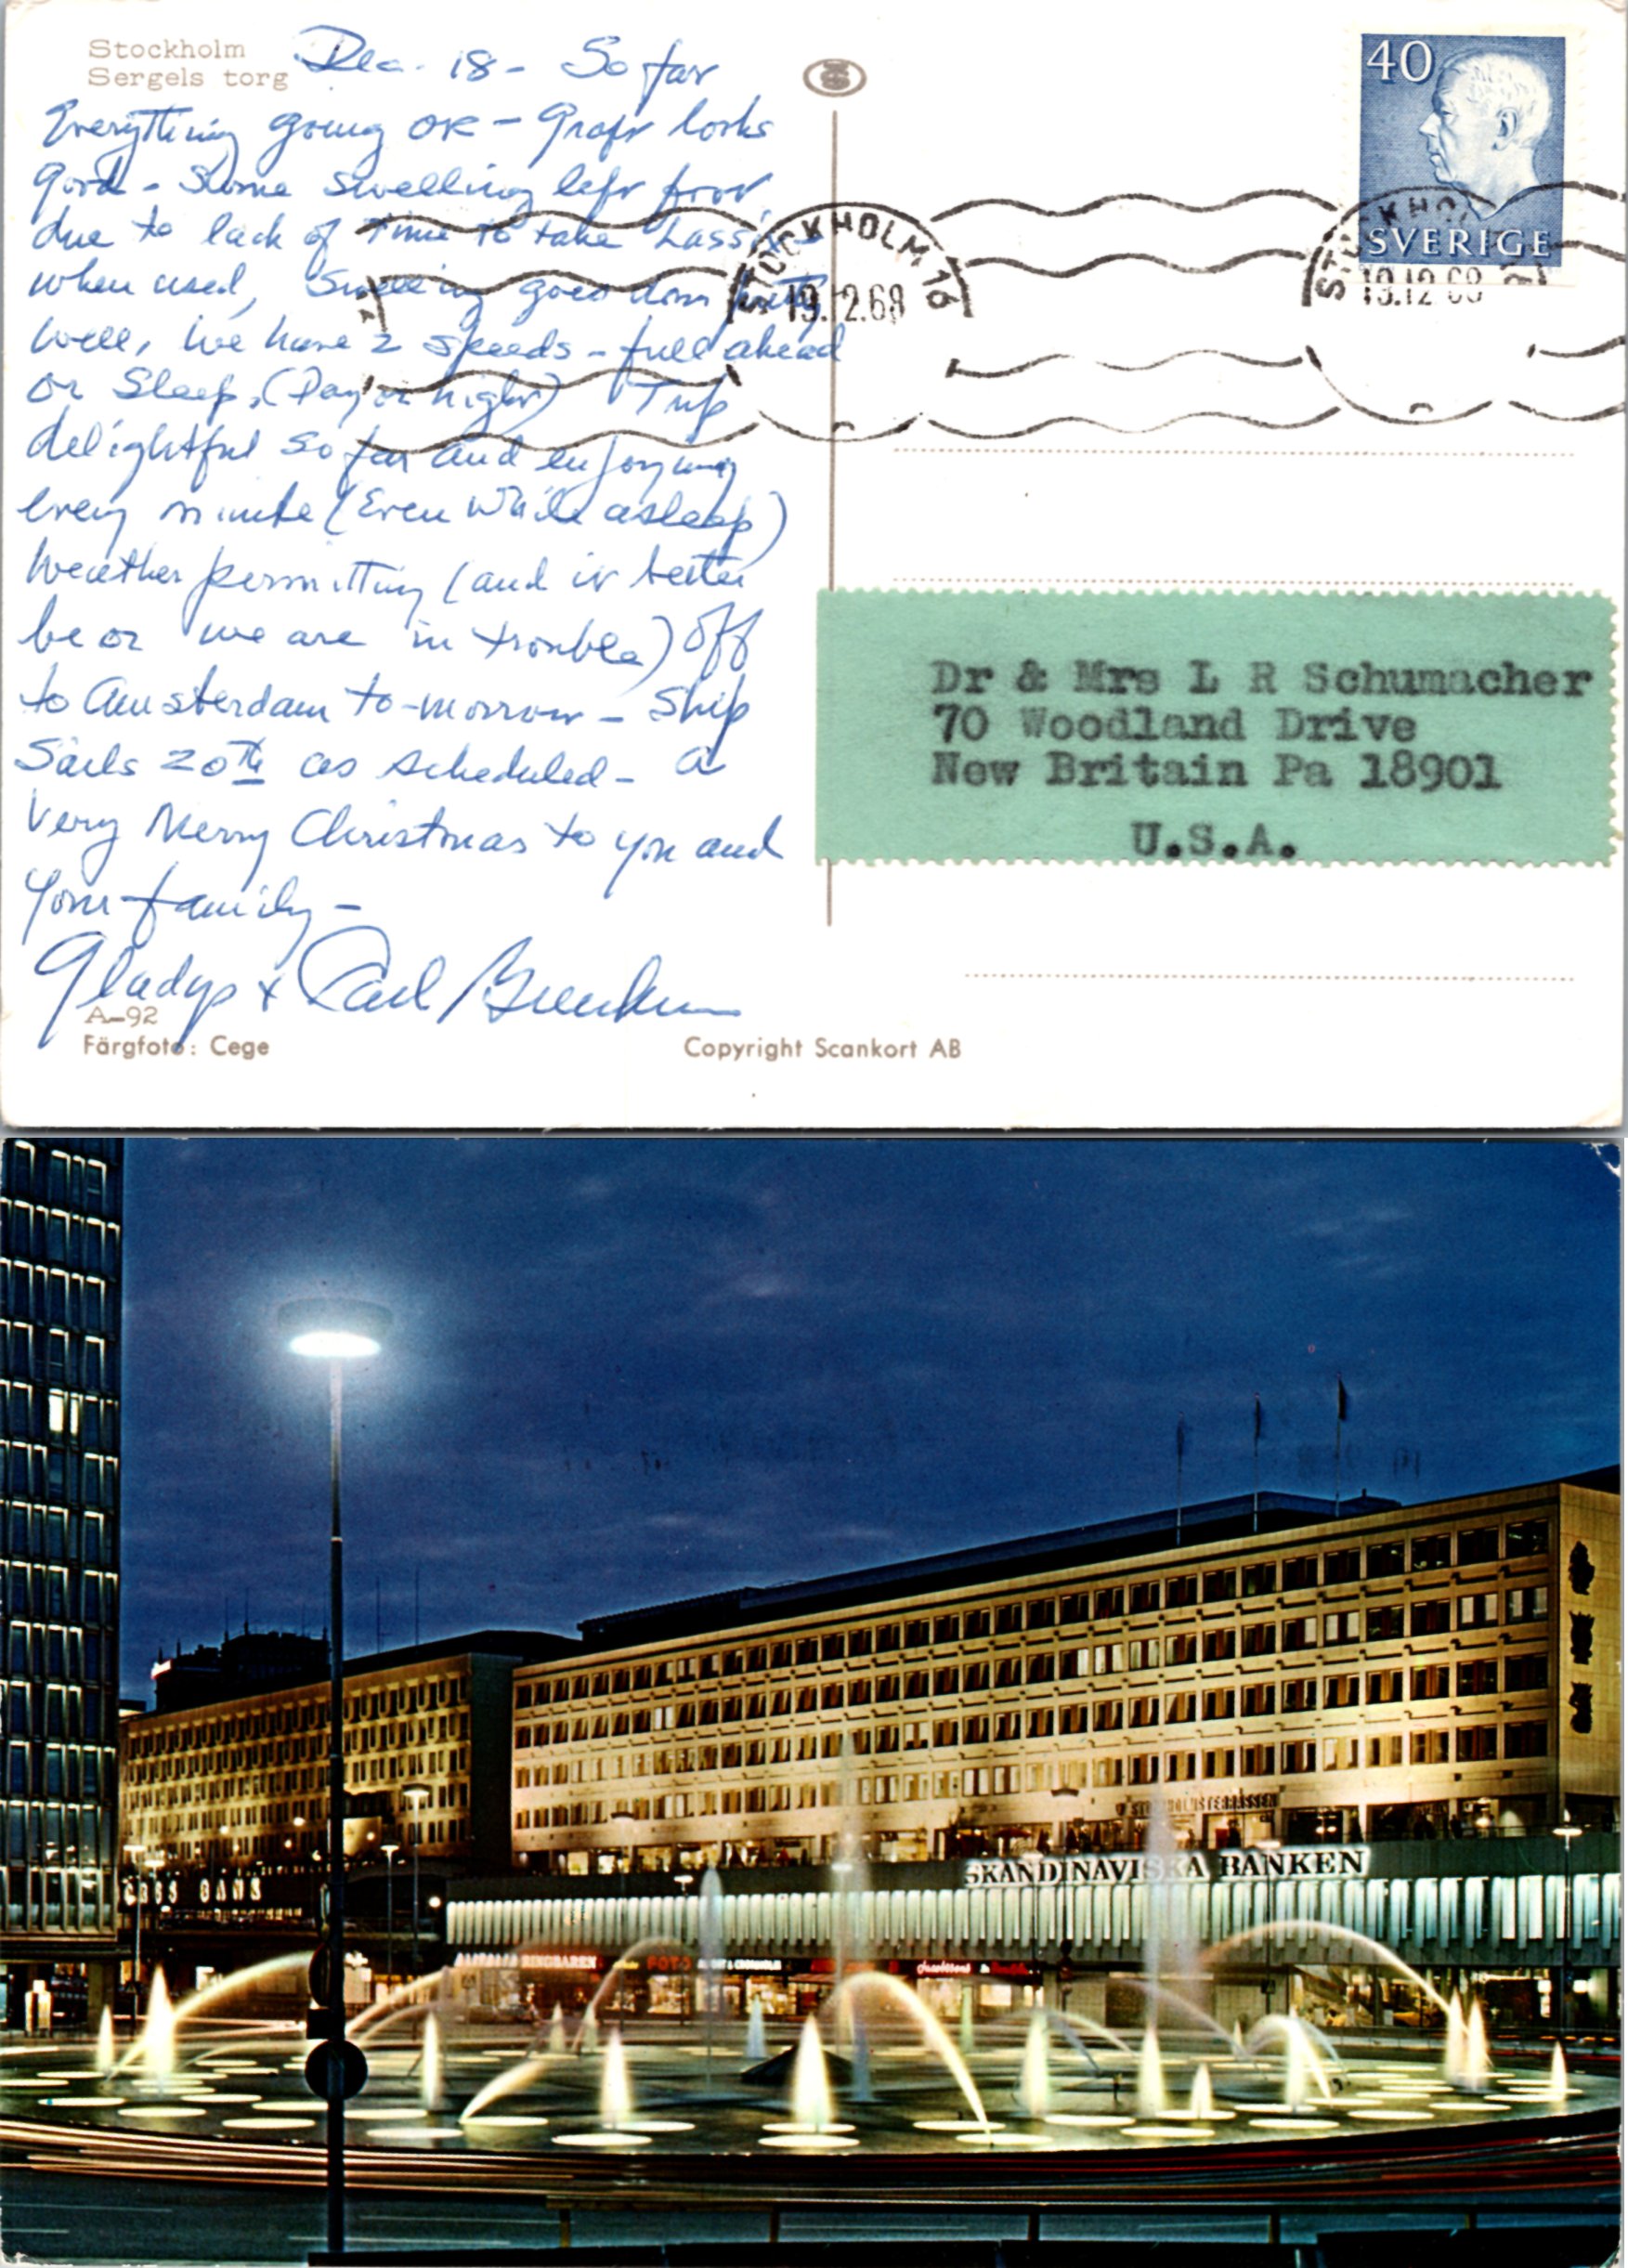 Stockholm
Sergels torg
Dec. 18 - So far
Everything going OK - Graft looks
good - Some swelling left foot,
due to lack of time to take Lassix -
when used, Swelling goes down
well, We have 2 speeds - full ahead
or Sleep, (Day or night) Trip
delightful so far and enjoying
every minute (Even while asleep)
Weather permitting (and it better
be or we are in trouble) off
to Amsterdam to-morrow - Ship
Sails 20th as scheduled - a
Very Merry Christmas to you and
Your family -
Gladys & Carl
A-92
Färgfoto: Cege
Copyright Scankort AB
40
SVERIGE
STOCKHOLM 16
19.12.68
19.12.68
Dr & Mrs L R Schumacher
70 Woodland Drive
New Britain Pa 18901
U.S.A.
SKANDINAVISKA BANKEN
RINGBAREN
FOTO